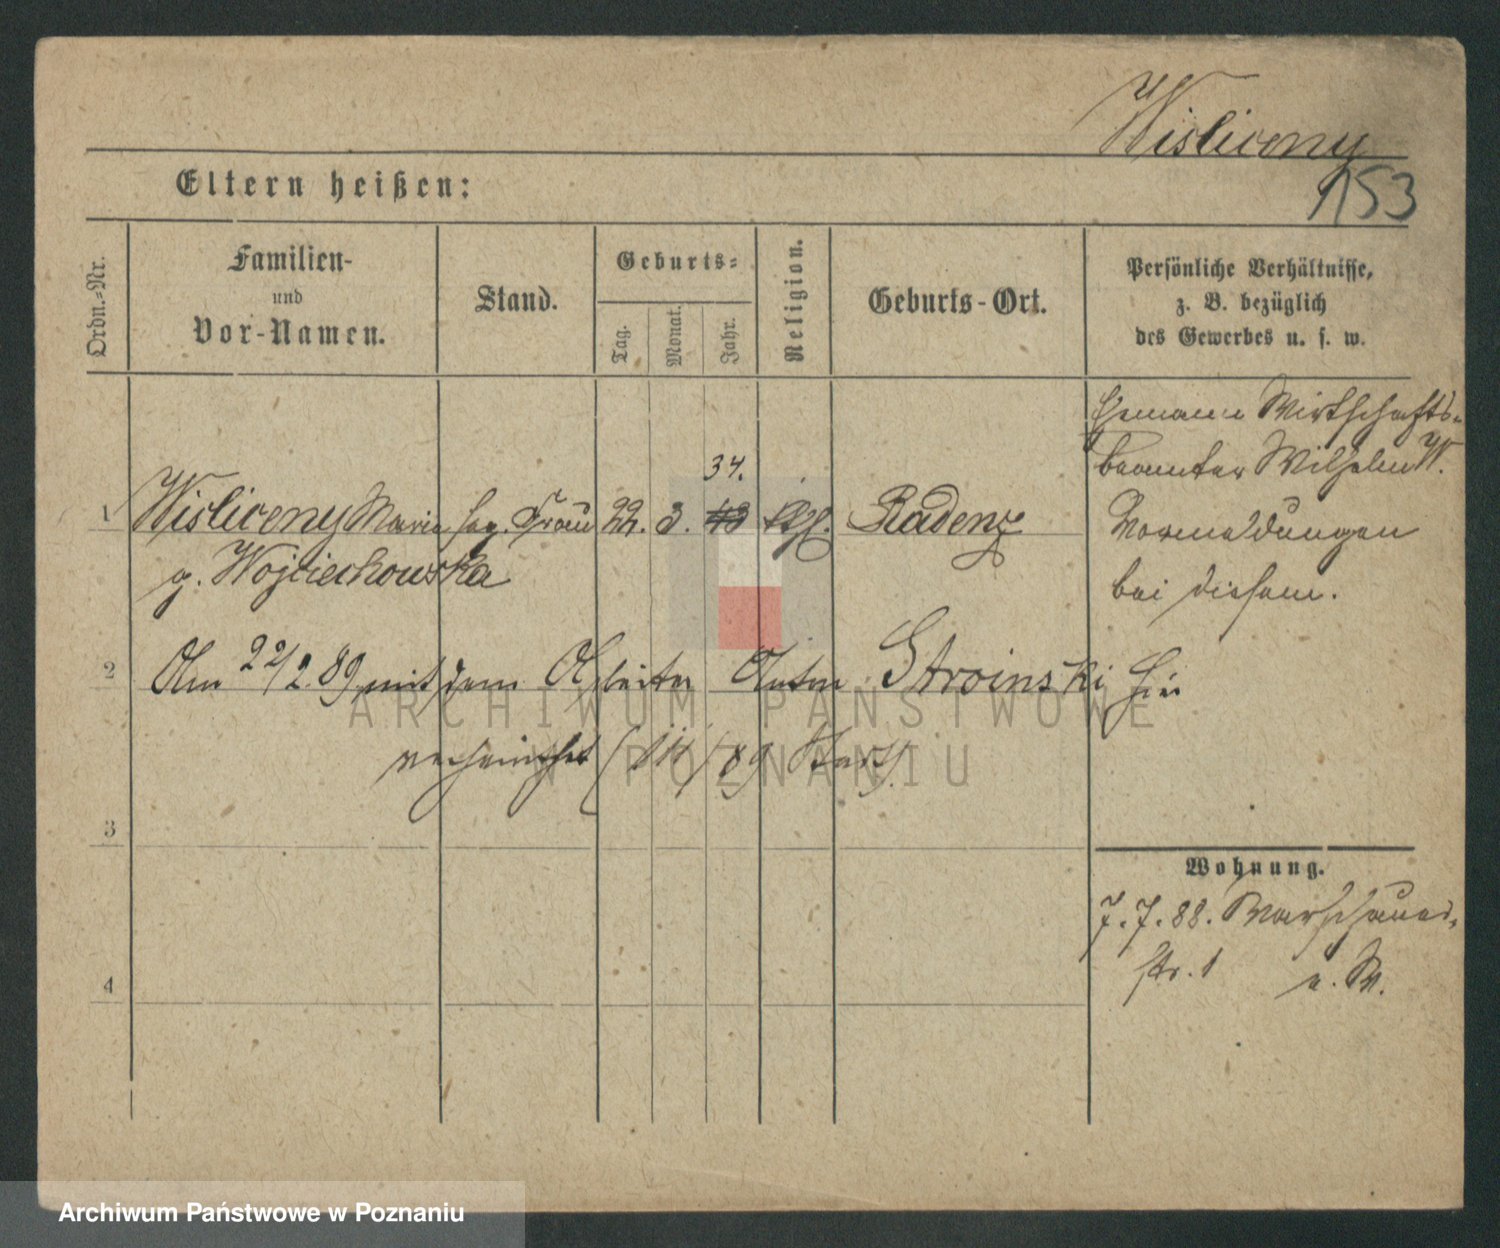 Wisliceny
153
Eltern heißen:
Ordn.-Nr.
Familien-
und
Vor-Namen.
Stand.
Geburts-
Tag.
Monat.
Jahr.
Religion.
Geburts-Ort.
Persönliche Verhältnisse,
z. B. bezüglich
des Gewerbes u. s. w.
Ehemann Wirthschafts-
beamter Wilhelm W.
34.
1 Wisliceny Maria Frau 22. 3. 43 Radenz
Vormeldungen
g. Wojciechowska
bei diesem.
2 Am 22/2. 89 mit dem Arbeiter Anton Stroinski hier
verheirathet
3
Wohnung.
7. 7. 88. Warschauer-
str. 1
4
ARCHIWUM PAŃSTWOWE
W POZNANIU
Archiwum Państwowe w Poznaniu